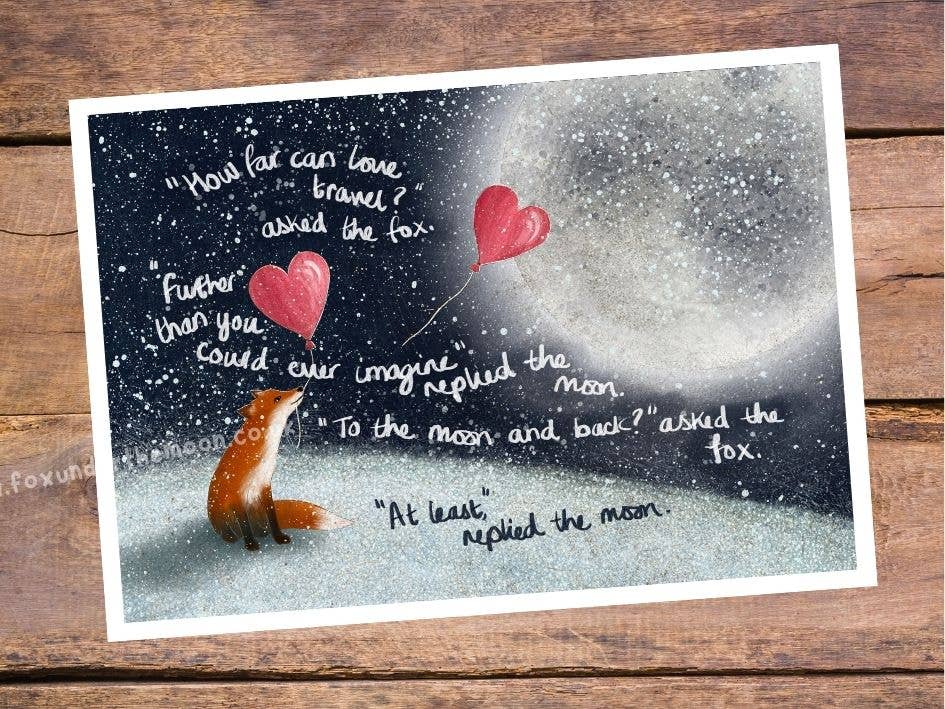 "How far can love
travel?"
asked the fox.
"Further
than you
could ever imagine"
replied the
moon.
"To the moon and back?" asked the
fox.
"At least",
replied the moon.
.foxunderthemoon.co.uk